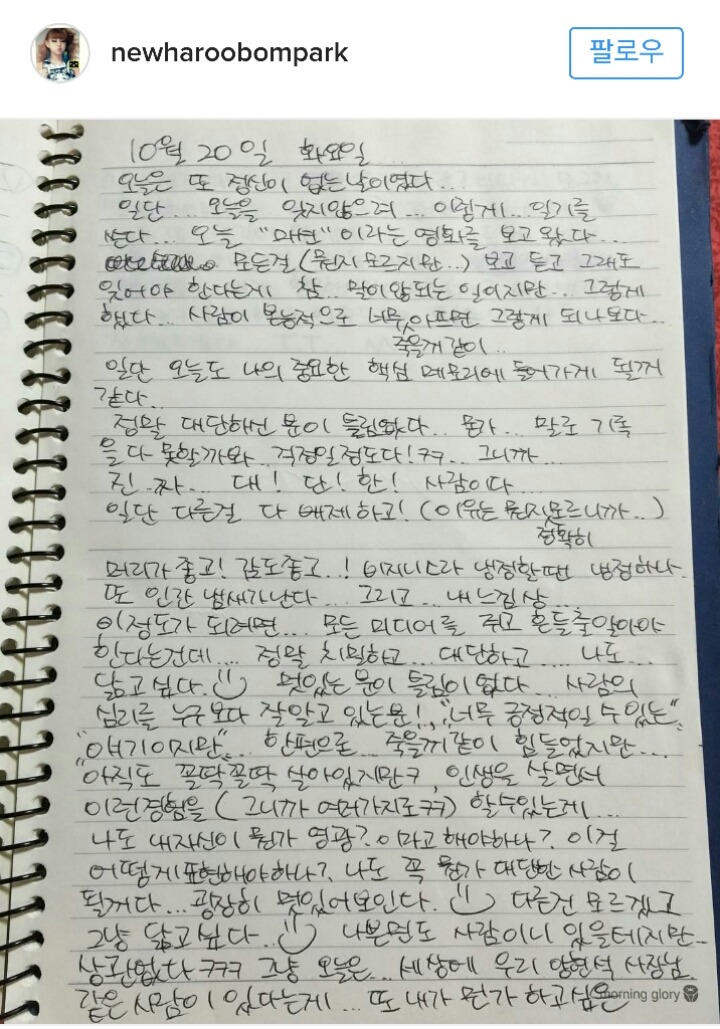 newharoobompark
팔로우
10월 20일 화요일...
오늘은 또 정신이 없는 날이었다...
일단... 오늘을 잊지않으려... 이렇게... 일기를
쓴다... 오늘 "매변"이라는 영화를 보고 왔다...
모든걸 (뭔지 모르지만...) 보고 듣고 그래도
잊어야 한다는게 참.. 말이 않되는 일이지만... 그렇게
했다... 사람이 본능적으로 너무 아프면 그렇게 되나보다...
죽을꺼 같이..
일단 오늘도 나의 중요한 핵심 메모리에 들어가게 될꺼
같다..
정말 대단하신 분이 틀림없다... 뭔가... 말로 기록
을 다 못할까봐 걱정일정도다! ㅋㅋ... 그니까...
진..짜... 대! 단! 한! 사람이다...
일단 다른걸 다 배제하고! (이유는 뭔지모르니까..)
정확히
머리가 좋고! 감도좋고..! 비지니스라 냉정할땐 냉정하나..
또 인간 냄새가 난다... 그리고... 내 느낌상...
이정도가 되려면... 모든 미디어를 쥐고 흔들줄알아야
한다는건데... 정말 치밀하고... 대단하고... 나도...
닮고 싶다. 멋있는 분이 틀림이 없다... 사람의
심리를 누구보다 잘알고 있는분!, "너무 긍정적일 수 있는"
"얘기이지만" 한편으론... 죽을꺼 같이 힘들었지만...
"아직도 꼴딱꼴딱 살아있지만ㅋ, 인생을 살면서
이런경험을 (그니까 여러가지로ㅋㅋ) 할수있는게...
나도 내자신이 뭔가 영광? 이라고 해야하나?. 이걸
어떻게 표현해야하나?. 나도 꼭 뭔가 대단한 사람이
될꺼다... 굉장히 멋있어보인다. 다른건 모르겠고
그냥 닮고싶다.. 나쁜면도 사람이니 있을테지만..
상관없다 ㅋㅋㅋ 그냥 오늘은... 세상에 우리 양현석 사장님.
같은 사람이 있다는게... 또 내가 뭔가 하고싶은
morning glory